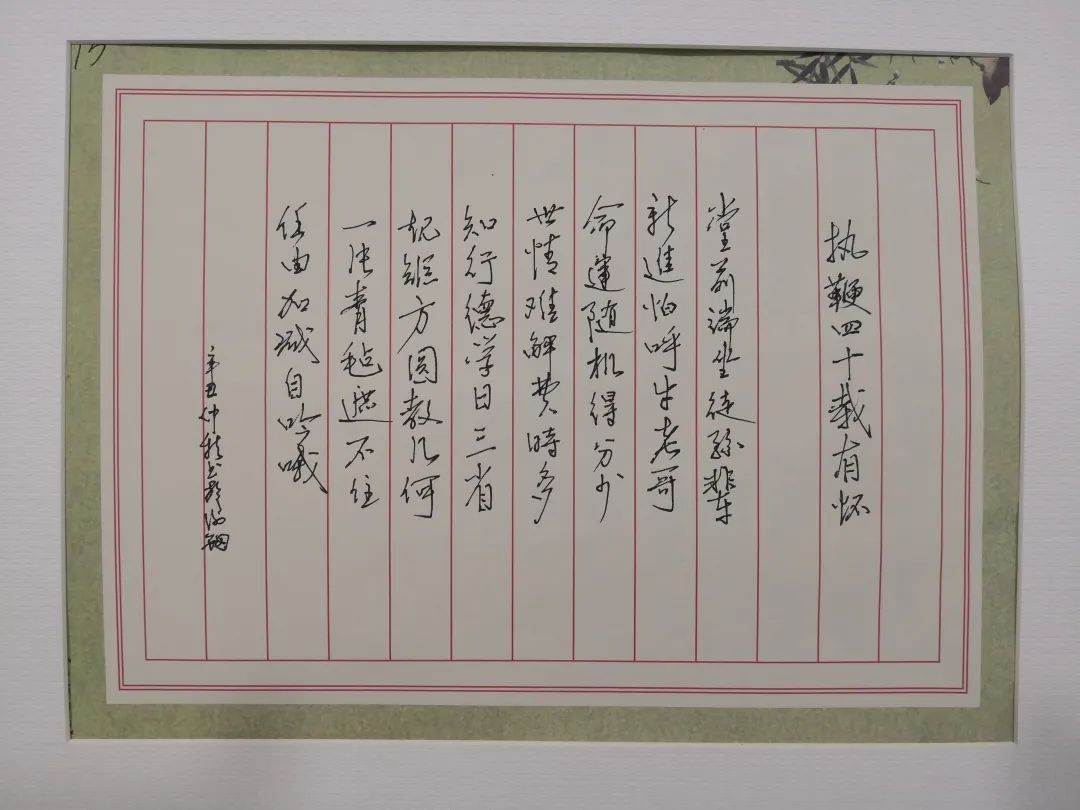 执鞭四十载有怀
堂前端坐徒孙辈
新进怕呼牛老哥
命运随机得分少
世情难解费时多
知行德学日三省
规矩方圆教几何
一张青毡遮不住
任由加减自吟哦
辛丑仲秋
15